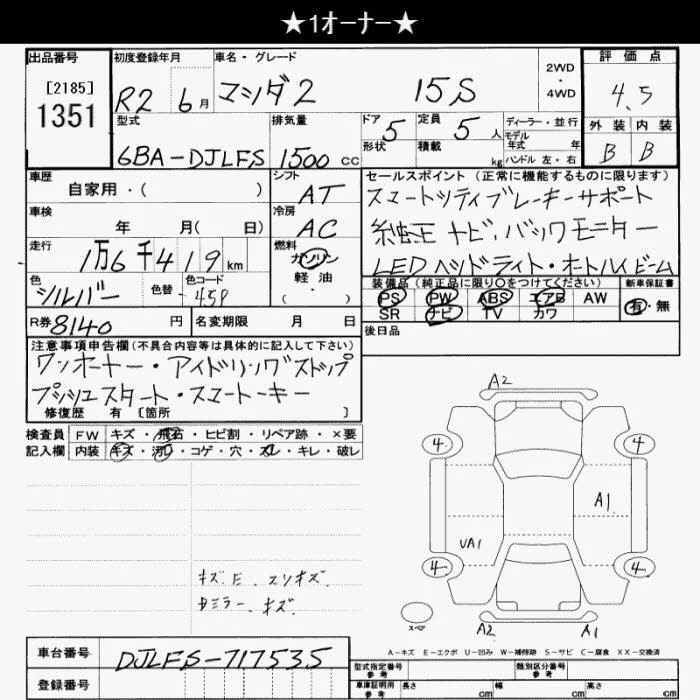 ★1オーナー★
出品番号
[2185]
1351
初度登録年月
R2 6月
車名・グレード
マツダ2 15S
2WD
・
4WD
評価点
4.5
外装 内装
B B
型式
6BA-DJLFS
排気量
1500 cc
ドア 5
形状
定員 5 人
積載 kg
ディーラー・並行
モデル年式 年
ハンドル 左・右
車歴
自家用・( )
車検
年 月( 日)
走行
1万6千419km
色
シルバー
色替
色コード
45P
シフト
AT
冷房
AC
燃料
ガソリン
軽・油
・
( )
セールスポイント(正常に機能するものに限ります)
スマートシティブレーキサポート
純正ナビ、バックモニター
LEDヘッドライト・オートハイビーム
装備品(純正品に限り○をつけてください)
PS PW ABS エアB AW
SR ナビ TV カワ
新車保証書
有・無
後日品
R券 8140 円
名変期限 月 日
注意事項申告欄(不具合内容等は具体的に記入して下さい)
ワンオーナー・アイドリングストップ
プッシュスタート・スマートキー
修復歴 有 [箇所 ]
検査員記入欄
FW キズ・飛石・ヒビ割・リペア跡・×要
内装 キズ・汚れ・コゲ・穴・スレ・キレ・破レ
キズE、スリキズ
ミラー、キズ
A2
4 4
A1
UA1
4 4
A2 A1
スペア
A-キズ E-エクボ U-凹み W-補修跡 S-サビ C-腐食 XX-交換済
車台番号
DJLFS-717535
登録番号
型式指定番号
参考
類別区分番号
参考
車庫証明用
参考
長さ cm 幅 cm 高さ cm